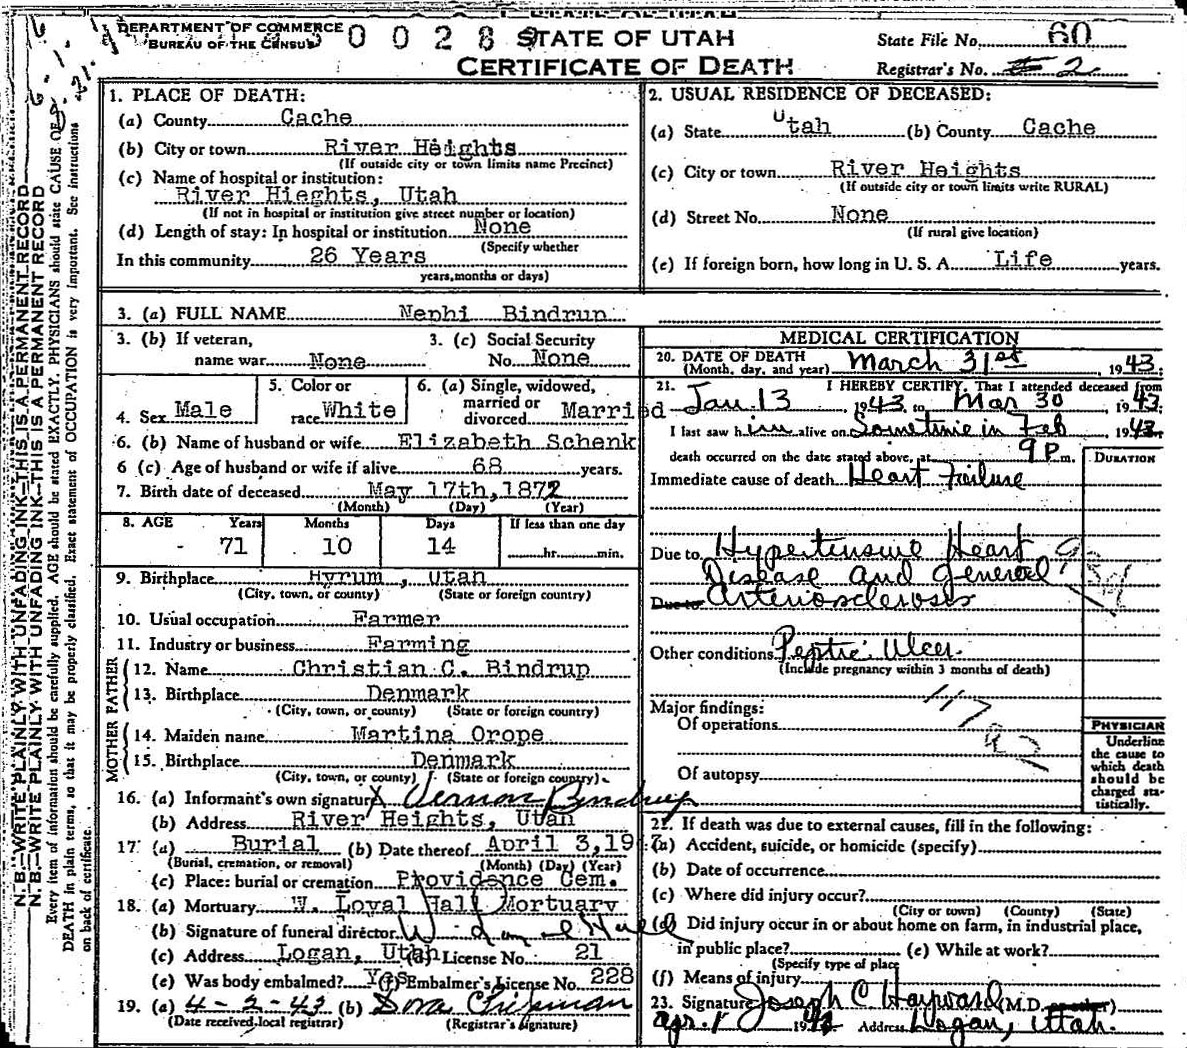 DEPARTMENT OF COMMERCE
BUREAU OF THE CENSUS
0 0 2 8 9
STATE OF UTAH
CERTIFICATE OF DEATH
State File No. 60
Registrar's No. 2
N. B.—WRITE PLAINLY WITH UNFADING INK—THIS IS A PERMANENT RECORD
N. B.—WRITE PLAINLY WITH UNFADING INK—THIS IS A PERMANENT RECORD
Every item of information should be carefully supplied. AGE should be stated EXACTLY. PHYSICIANS should state CAUSE OF
DEATH in plain terms, so that it may be properly classified. Exact statement of OCCUPATION is very important. See instructions
on back of certificate.
1. PLACE OF DEATH:
(a) County Cache
(b) City or town River Heights
(If outside city or town limits name Precinct)
(c) Name of hospital or institution:
River Hieghts, Utah
(If not in hospital or institution give street number or location)
(d) Length of stay: In hospital or institution None
(Specify whether
In this community 26 Years
years, months or days)
2. USUAL RESIDENCE OF DECEASED:
(a) State Utah (b) County Cache
(c) City or town River Heights
(If outside city or town limits write RURAL)
(d) Street No. None
(If rural give location)
(e) If foreign born, how long in U. S. A. Life years.
3. (a) FULL NAME Nephi Bindrup
3. (b) If veteran, name war None
3. (c) Social Security No. None
4. Sex Male
5. Color or race White
6. (a) Single, widowed, married or divorced Married
6. (b) Name of husband or wife Elizabeth Schenk
6 (c) Age of husband or wife if alive 68 years.
7. Birth date of deceased May 17th, 1872
(Month) (Day) (Year)
8. AGE Years Months Days If less than one day
71 10 14 hr. min.
9. Birthplace Hyrum, Utah
(City, town, or county) (State or foreign country)
10. Usual occupation Farmer
11. Industry or business Farming
FATHER
12. Name Christian C. Bindrup
13. Birthplace Denmark
(City, town, or county) (State or foreign country)
MOTHER
14. Maiden name Martina Orope
15. Birthplace Denmark
(City, town, or county) (State or foreign country)
16. (a) Informant's own signature X Vernon Bindrup
(b) Address River Heights, Utah
17. (a) Burial (b) Date thereof April 3, 19
(Burial, cremation, or removal) (Month) (Day) (Year)
(c) Place: burial or cremation Providence Cem.
18. (a) Mortuary W. Loyal Hall Mortuary
(b) Signature of funeral director W. Loyal Hall
(c) Address Logan, Utah (d) License No. 21
(e) Was body embalmed? Yes (f) Embalmer's License No. 228
19. (a) 4-2-43 (b) Dora Chipman
(Date received local registrar) (Registrar's signature)
MEDICAL CERTIFICATION
20. DATE OF DEATH
(Month, day, and year) March 31st, 1943.
21. I HEREBY CERTIFY, That I attended deceased from
Jan 13, 1943 to Mar 30, 1943.
I last saw him alive on Sometime in Feb 1943.
death occurred on the date stated above, at 9 P m.
DURATION
Immediate cause of death Heart Failure
Due to Hypertensive Heart
Disease and general
Due to Arteriosclerosis
Other conditions Peptic Ulcer.
(Include pregnancy within 3 months of death)
117
Major findings:
Of operations
Of autopsy
PHYSICIAN
Underline
the cause to
which death
should be
charged sta-
tistically.
22. If death was due to external causes, fill in the following:
(a) Accident, suicide, or homicide (specify)
(b) Date of occurrence
(c) Where did injury occur?
(City or town) (County) (State)
(d) Did injury occur in or about home on farm, in industrial place,
in public place? (e) While at work?
(Specify type of place
(f) Means of injury
23. Signature Joseph C Hayward (M.D. or other)
Apr. 1 1943 Address Logan, Utah.